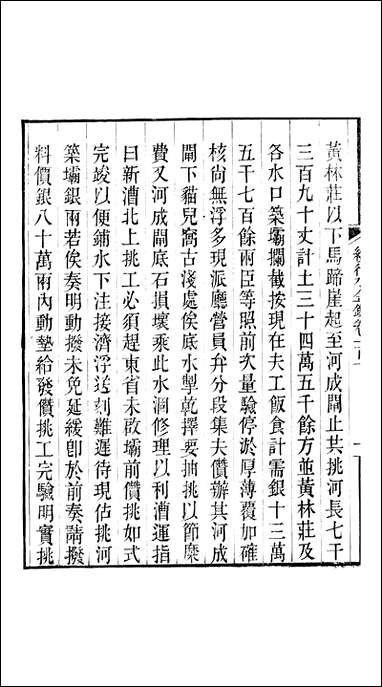 黃林莊以下馬蹄崖起至河成閘止共挑河長七千
三百九十丈計土三十四萬五千餘方並黃林莊及
各水口築壩攔截按現在夫工飯食計需銀十三萬
五千七百餘兩臣等照前次量驗停淤厚薄覆加確
核尚無浮多現派廳營員弁分段集夫儹辦其河成
閘下貓兒窩古淺處俟底水掣乾擇要抽挑以節糜
費又河成閘底石損壞乘此水涸修理以利漕運指
曰新漕北上挑工必須趕東省未啟壩前儹挑如式
完竣以便鋪水下注接濟浮送刻難遲待現估挑河
築壩銀兩若俟奏明動撥未免延緩卽於前奏請撥
料價銀八十萬兩內動墊給發儹挑工完驗明實挑